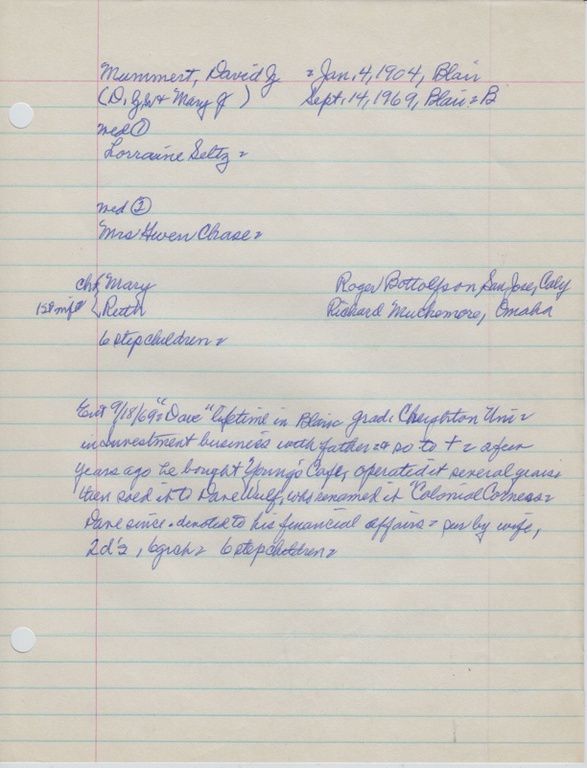 Mummert, David Z = Jan. 4, 1904, Blair
(D. Z. & Mary J ) Sept. 14, 1969, Blair = B
med ①
Lorraine Seltz =
med ②
Mrs Gwen Chase =
ch Mary Roger Bottolfson San Jose, Caly
1st mge Ruth Richard Muchemore, Omaha
6 stepchildren =
Ent 9/18/69 = "Dave" lifetime in Blair grad. Creighton Uni =
in investment business with father = & so to + = a few
years ago he bought "Young's Cafe, operated it several years =
then sold it to Dave Wulf, who renamed it "Colonial Corners =
Dave since = devoted to his financial affairs = sur by wife,
2 d's, 6 grch = 6 stepchildren =